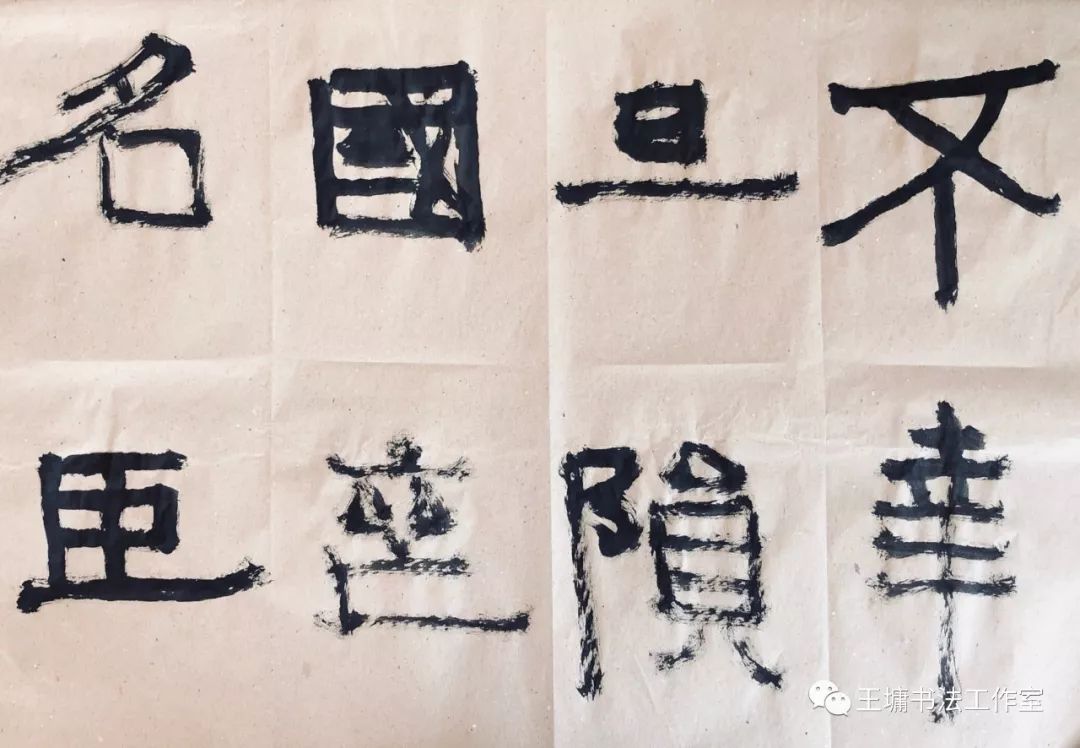 不幸
旦隕
國喪
名臣
王墉书法工作室